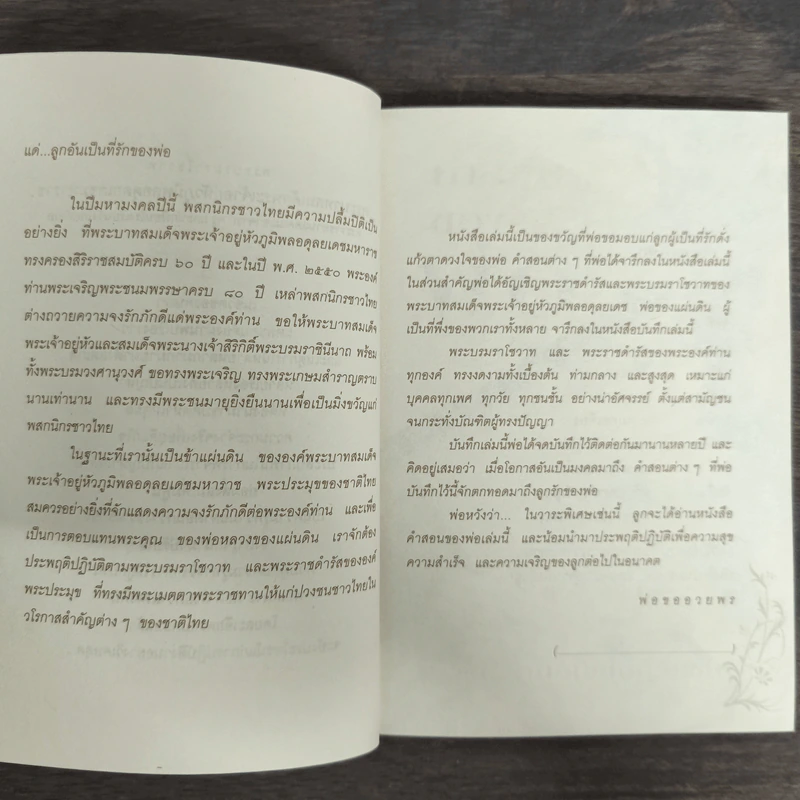 แด่...ลูกอันเป็นที่รักของพ่อ
ในปีมหามงคลปีนี้ พสกนิกรชาวไทยมีความปลื้มปิติเป็น
อย่างยิ่ง ที่พระบาทสมเด็จพระเจ้าอยู่หัวภูมิพลอดุลยเดชมหาราช
ทรงครองสิริราชสมบัติครบ ๖๐ ปี และในปี พ.ศ. ๒๕๕๐ พระองค์
ท่านพระเจริญพระชนมพรรษาครบ ๘๐ ปี เหล่าพสกนิกรชาวไทย
ต่างถวายความจงรักภักดีแด่พระองค์ท่าน ขอให้พระบาทสมเด็จ
พระเจ้าอยู่หัวและสมเด็จพระนางเจ้าสิริกิติ์พระบรมราชินีนาถ พร้อม
ทั้งพระบรมวงศานุวงศ์ ขอทรงพระเจริญ ทรงพระเกษมสำราญตราบ
นานเท่านาน และทรงมีพระชนมายุยิ่งยืนนานเพื่อเป็นมิ่งขวัญแก่
พสกนิกรชาวไทย
ในฐานะที่เรานั้นเป็นข้าแผ่นดิน ขององค์พระบาทสมเด็จ
พระเจ้าอยู่หัวภูมิพลอดุลยเดชมหาราช พระประมุขของชาติไทย
สมควรอย่างยิ่งที่จักแสดงความจงรักภักดีต่อพระองค์ท่าน และเพื่อ
เป็นการตอบแทนพระคุณ ของพ่อหลวงของแผ่นดิน เราจักต้อง
ประพฤติปฏิบัติตามพระบรมราโชวาท และพระราชดำรัสขององค์
พระประมุข ที่ทรงมีพระเมตตาพระราชทานให้แก่ปวงชนชาวไทยใน
วโรกาสสำคัญต่าง ๆ ของชาติไทย
หนังสือเล่มนี้เป็นของขวัญที่พ่อขอมอบแก่ลูกผู้เป็นที่รักดั่ง
แก้วตาดวงใจของพ่อ คำสอนต่าง ๆ ที่พ่อได้จารึกลงในหนังสือเล่มนี้
ในส่วนสำคัญพ่อได้อัญเชิญพระราชดำรัสและพระบรมราโชวาทของ
พระบาทสมเด็จพระเจ้าอยู่หัวภูมิพลอดุลยเดช พ่อของแผ่นดิน ผู้
เป็นที่พึ่งของพวกเราทั้งหลาย จารึกลงในหนังสือบันทึกเล่มนี้
พระบรมราโชวาท และ พระราชดำรัสของพระองค์ท่าน
ทุกองค์ ทรงงดงามทั้งเบื้องต้น ท่ามกลาง และสูงสุด เหมาะแก่
บุคคลทุกเพศ ทุกวัย ทุกชนชั้น อย่างน่าอัศจรรย์ ตั้งแต่สามัญชน
จนกระทั่งบัณฑิตผู้ทรงปัญญา
บันทึกเล่มนี้พ่อได้จดบันทึกไว้ติดต่อกันมานานหลายปี และ
คิดอยู่เสมอว่า เมื่อโอกาสอันเป็นมงคลมาถึง คำสอนต่าง ๆ ที่พ่อ
บันทึกไว้นี้จักตกทอดมาถึงลูกรักของพ่อ
พ่อหวังว่า... ในวาระพิเศษเช่นนี้ ลูกจะได้อ่านหนังสือ
คำสอนของพ่อเล่มนี้ และน้อมนำมาประพฤติปฏิบัติเพื่อความสุข
ความสำเร็จ และความเจริญของลูกต่อไปในอนาคต
พ่อขออวยพร
(____________________)